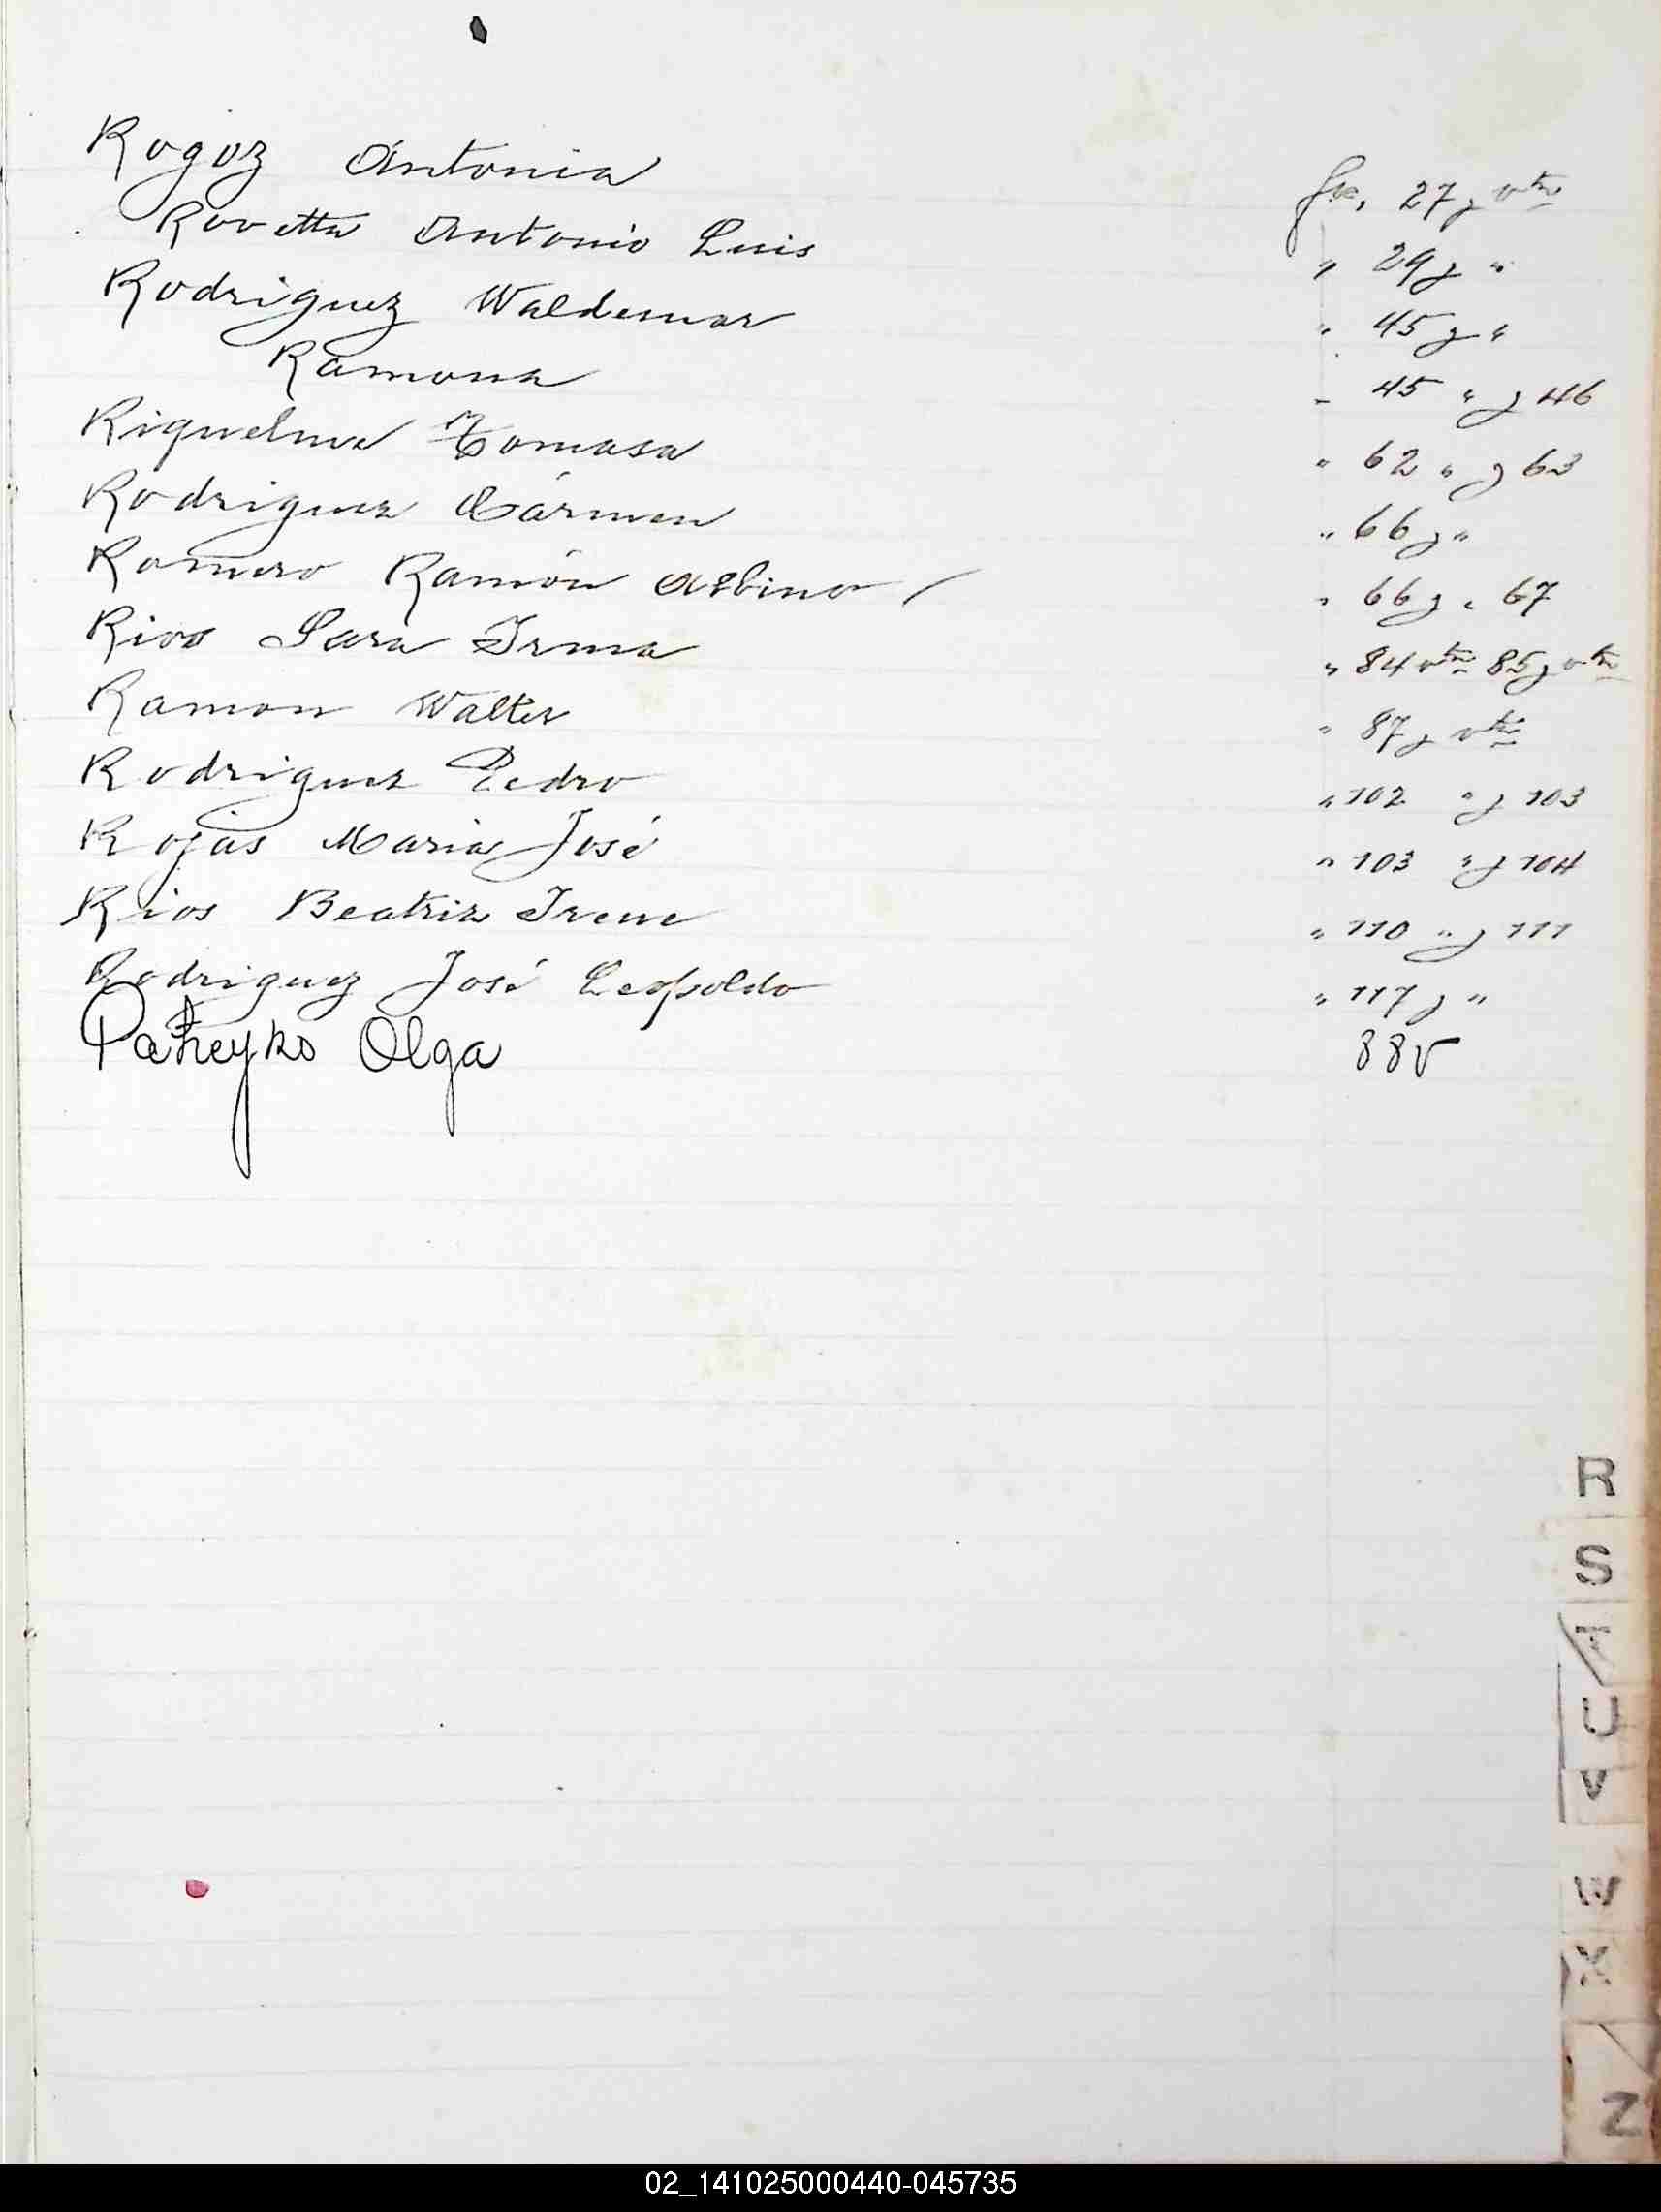 Rogoz Antonia fs. 27 y vta
Rovetta Antonio Luis " 29 y "
Rodriguez Waldemar " 45 y "
Ramona " 45 " y 46
Riquelme Tomasa " 62 " y 63
Rodriguez Cármen " 66 y "
Romero Ramón Albino " 66 y " 67
Rios Sara Irma " 84 vta 85 y vta
Ramon Walter " 87 y vta
Rodriguez Pedro " 102 " y 103
Rojas Maria José " 103 " y 104
Rios Beatriz Irene " 110 " y 111
Rodriguez José Leopoldo " 117 y "
Olga 88v
R
S
T
U
V
W
X
Z
02_141025000440-045735